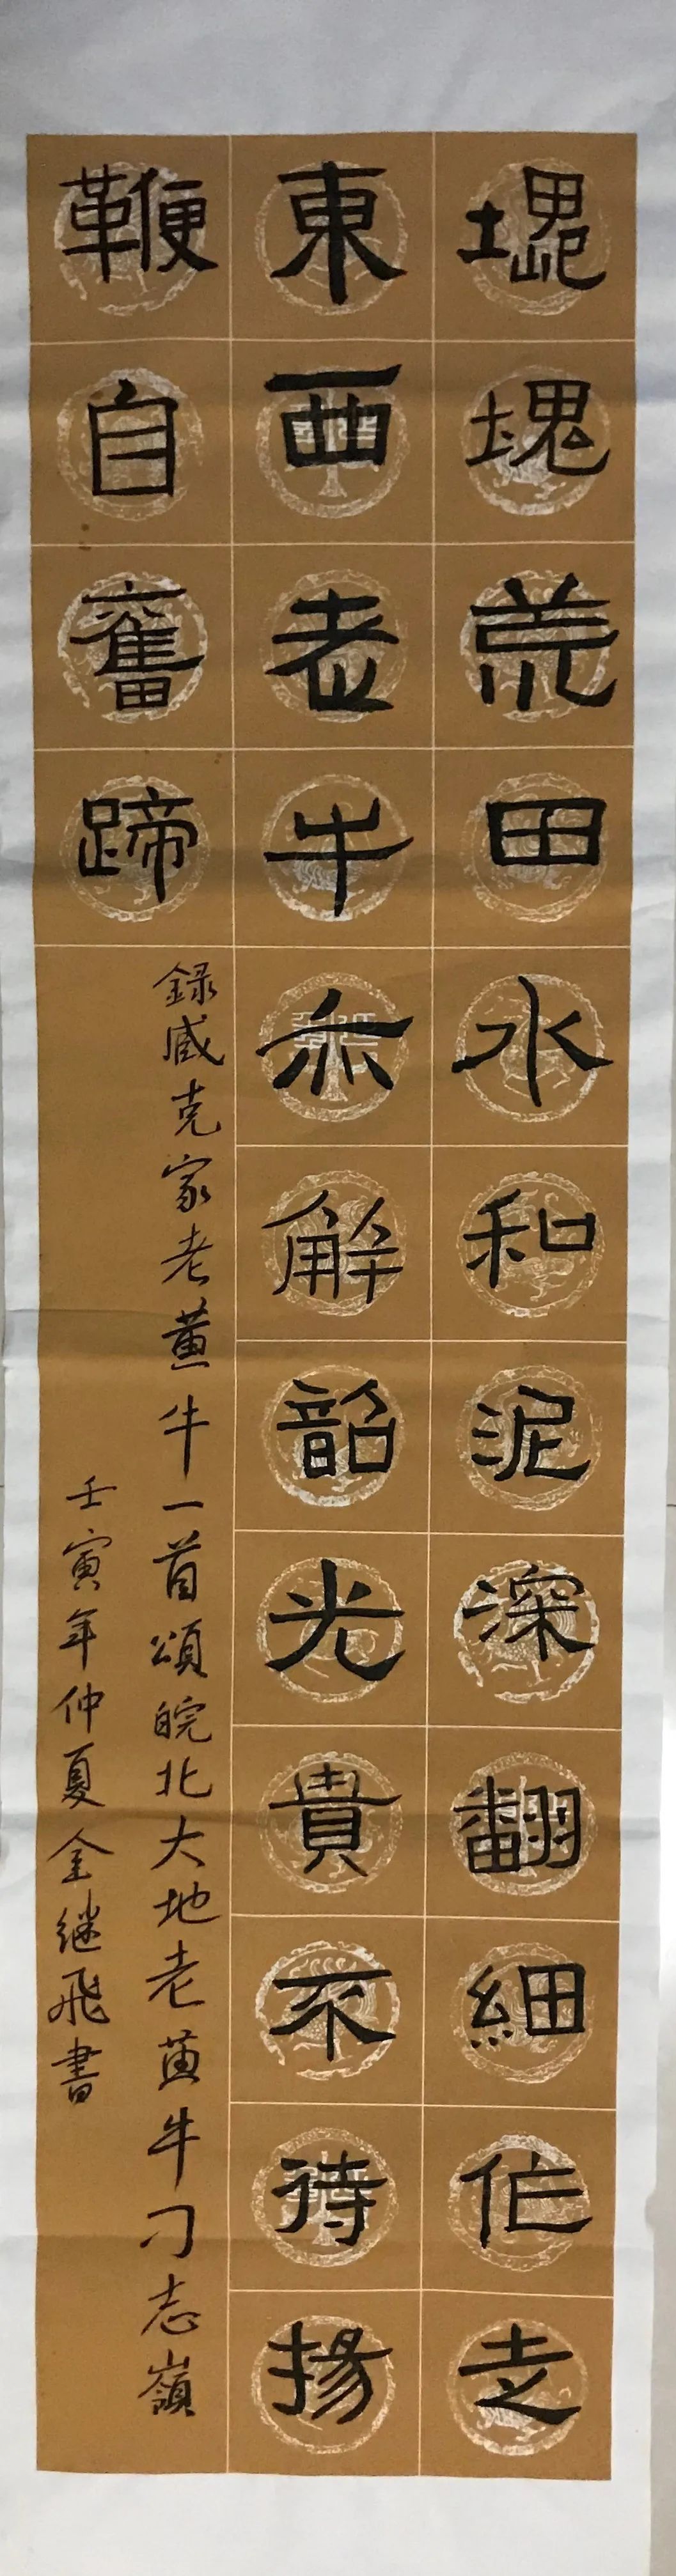 塊塊荒田水和泥深翻細作走
東西老牛亦解韶光貴不待揚
鞭自奮蹄
録臧克家老黄牛一首頌皖北大地老黄牛刁志嶺
壬寅年仲夏金继飛書